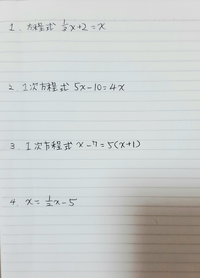 1. 方程式 1/2x+2=x
2. 1次方程式 5x-10=4x
3. 1次方程式 x-7=5(x+1)
4 x=1/2x-5